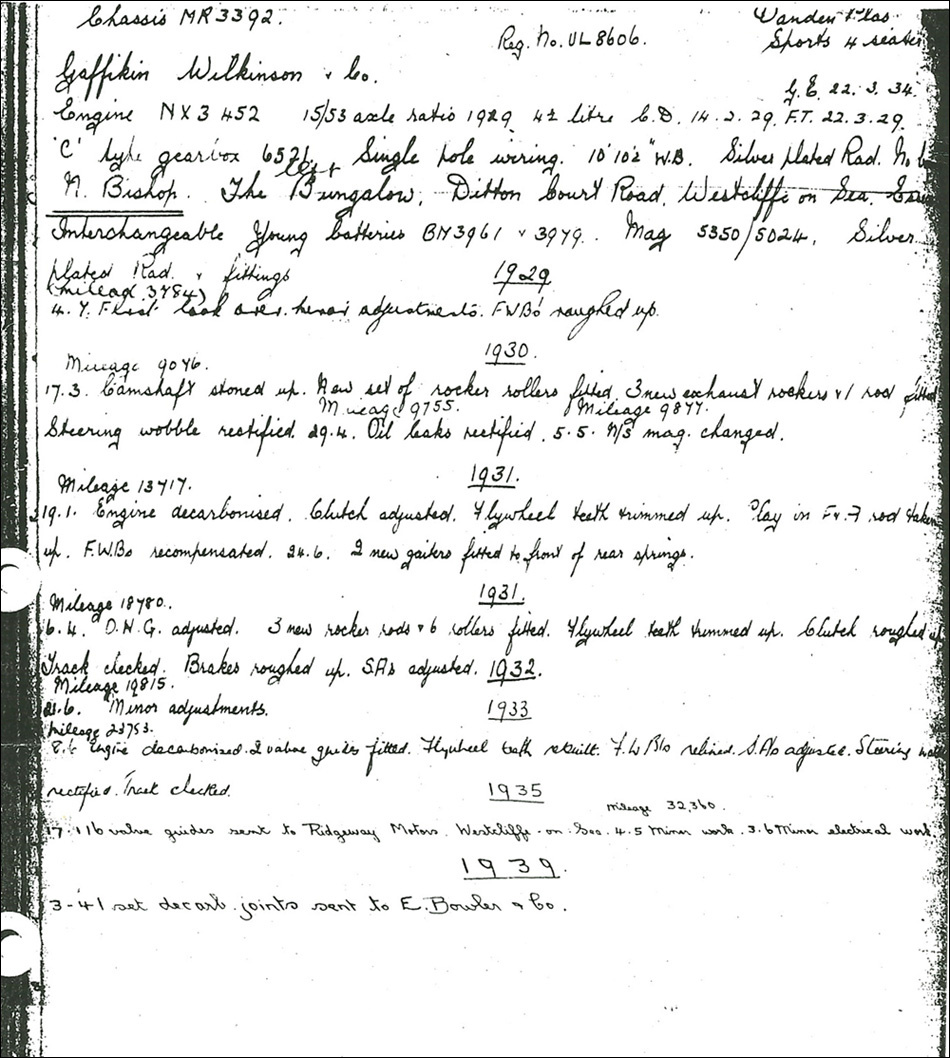 Chassis MR3392.
Reg. No. UL8606.
Vanden Plas
Sports 4 seater
Gaffikin Wilkinson & Co.
G.E. 22.3.34.
Engine NX3452 15/53 axle ratio 1929 4½ litre C.D. 14.2.29. F.T. 22.3.29.
'C' type gearbox 6521. Single pole wiring. 10'10½" W.B. Silver plated Rad. No
N. Bishop. The Bungalow, Ditton Court Road, Westcliffe on Sea, Essex
Interchangeable Young batteries BM3961 & 3979. Mag 5350/5024, Silver
plated Rad. & fittings
1929
(Mileage 3784)
4.7. First look over. minor adjustments. FWBs roughed up.
1930.
Mileage 9046.
17.3. Camshaft stoned up. New set of rocker rollers fitted. 3 new exhaust rockers & 1 rod fitted
Mileage 9755. Mileage 9877.
Steering wobble rectified. 29.4. Oil leaks rectified. 5.5. N/S mag. changed.
1931.
Mileage 13717.
19.1. Engine decarbonised. Clutch adjusted. Flywheel teeth trimmed up. Play in F & F rod taken
up. F.W.Bs recompensated. 24.6. 2 new gaiters fitted to front of rear springs.
1931.
Mileage 18780.
6.4. D.N.G. adjusted. 3 new rocker rods & 6 rollers fitted. Flywheel teeth trimmed up. Clutch roughed up
Track checked. Brakes roughed up. S.As adjusted. 1932.
Mileage 19815.
21.6. Minor adjustments. 1933
Mileage 23753.
8.6 Engine decarbonised. 2 valve guides fitted. Flywheel teeth rebuilt. F.W.Bs relined. S.As adjusted. Steering
rectified. Track checked. 1935
Mileage 32,360.
17.1 16 valve guides sent to Ridgeway Motors. Westcliffe-on-Sea. 4.5 Minor work. 3.6 Minor electrical work.
1939.
3-4 1 set decarb. joints sent to E. Bowler & Co.